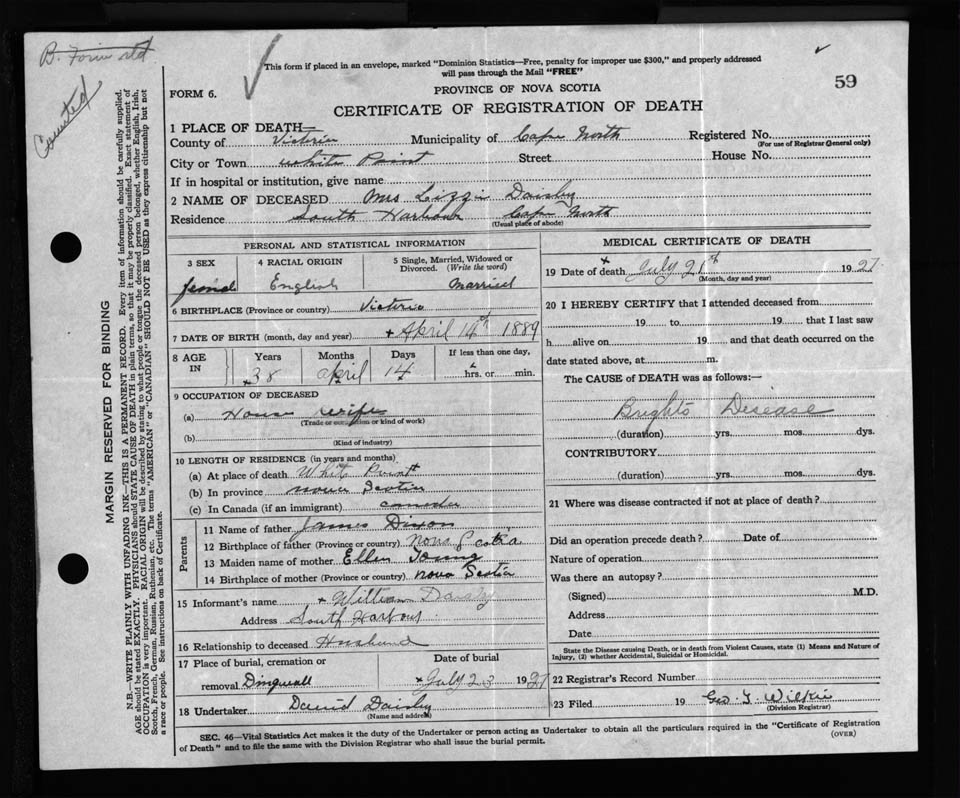 B. Form
Counted
This form if placed in an envelope, marked "Dominion Statistics—Free, penalty for improper use $300," and properly addressed
will pass through the Mail "FREE"
59
FORM 6.
PROVINCE OF NOVA SCOTIA
CERTIFICATE OF REGISTRATION OF DEATH
1 PLACE OF DEATH
County of Victoria Municipality of Cape North Registered No.
(For use of Registrar General only)
City or Town White Point Street House No.
If in hospital or institution, give name
2 NAME OF DECEASED Mrs Lizzie Daisley
Residence South Harbour Cape North
(Usual place of abode)
PERSONAL AND STATISTICAL INFORMATION
3 SEX 4 RACIAL ORIGIN 5 Single, Married, Widowed or
Divorced. (Write the word)
female English Married
6 BIRTHPLACE (Province or country) Victoria
7 DATE OF BIRTH (month, day and year) + April 14th 1889
8 AGE IN Years Months Days If less than one day,
38 April 14 hrs. or min.
9 OCCUPATION OF DECEASED
(a) House wife
(Trade or occupation or kind of work)
(b)
(Kind of industry)
10 LENGTH OF RESIDENCE (in years and months)
(a) At place of death Whit Point
(b) In province nova Scotia
(c) In Canada (if an immigrant) canada
Parents
11 Name of father James Dixon
12 Birthplace of father (Province or country) Nova Scotia
13 Maiden name of mother Ellen Young
14 Birthplace of mother (Province or country) Nova Scotia
15 Informant's name + William Daisly
Address South Harbour
16 Relationship to deceased Husband
17 Place of burial, cremation or Date of burial
removal Dingwall + July 23 1927
18 Undertaker David Daisley
(Name and address)
MEDICAL CERTIFICATE OF DEATH
19 Date of death July 21th 1927
(Month, day and year)
20 I HEREBY CERTIFY that I attended deceased from
19 to 19 that I last saw
h alive on 19 and that death occurred on the
date stated above, at m.
The CAUSE of DEATH was as follows:—
Brights Desease
(duration) yrs. mos. dys.
CONTRIBUTORY
(duration) yrs. mos. dys.
21 Where was disease contracted if not at place of death?
Did an operation precede death? Date of
Nature of operation
Was there an autopsy?
(Signed) M.D.
Address
Date
State the Disease causing Death, or in death from Violent Causes, state (1) Means and Nature of
Injury, (2) whether Accidental, Suicidal or Homicidal.
22 Registrar's Record Number
23 Filed 19 Geo. J. Wilkie
(Division Registrar)
SEC. 46—Vital Statistics Act makes it the duty of the Undertaker or person acting as Undertaker to obtain all the particulars required in the "Certificate of Registration
of Death" and to file the same with the Division Registrar who shall issue the burial permit.
(OVER)
MARGIN RESERVED FOR BINDING
N.B.—WRITE PLAINLY WITH UNFADING INK—THIS IS A PERMANENT RECORD. Every item of information should be carefully supplied.
AGE should be stated EXACTLY. PHYSICIANS should STATE CAUSE OF DEATH in plain terms, so that it may be properly classified. Exact statement of
OCCUPATION is very important. RACIAL ORIGIN will be described by stating to what people or tongue the deceased person belonged, whether English, Irish,
Scotch, French, German, Russian, Ruthenian, etc. The terms "AMERICAN" or "CANADIAN" SHOULD NOT BE USED as they express citizenship but not
a race or people. See instructions on back of Certificate.